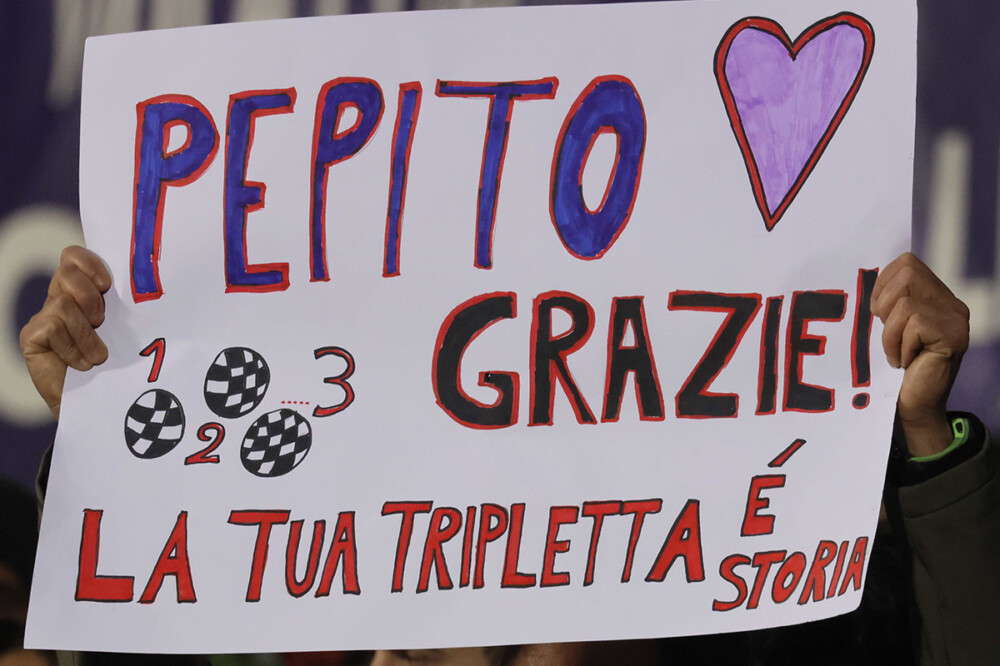 PEPITO
GRAZIE!
1
2
.....3
LA TUA TRIPLETTA É
STORIA